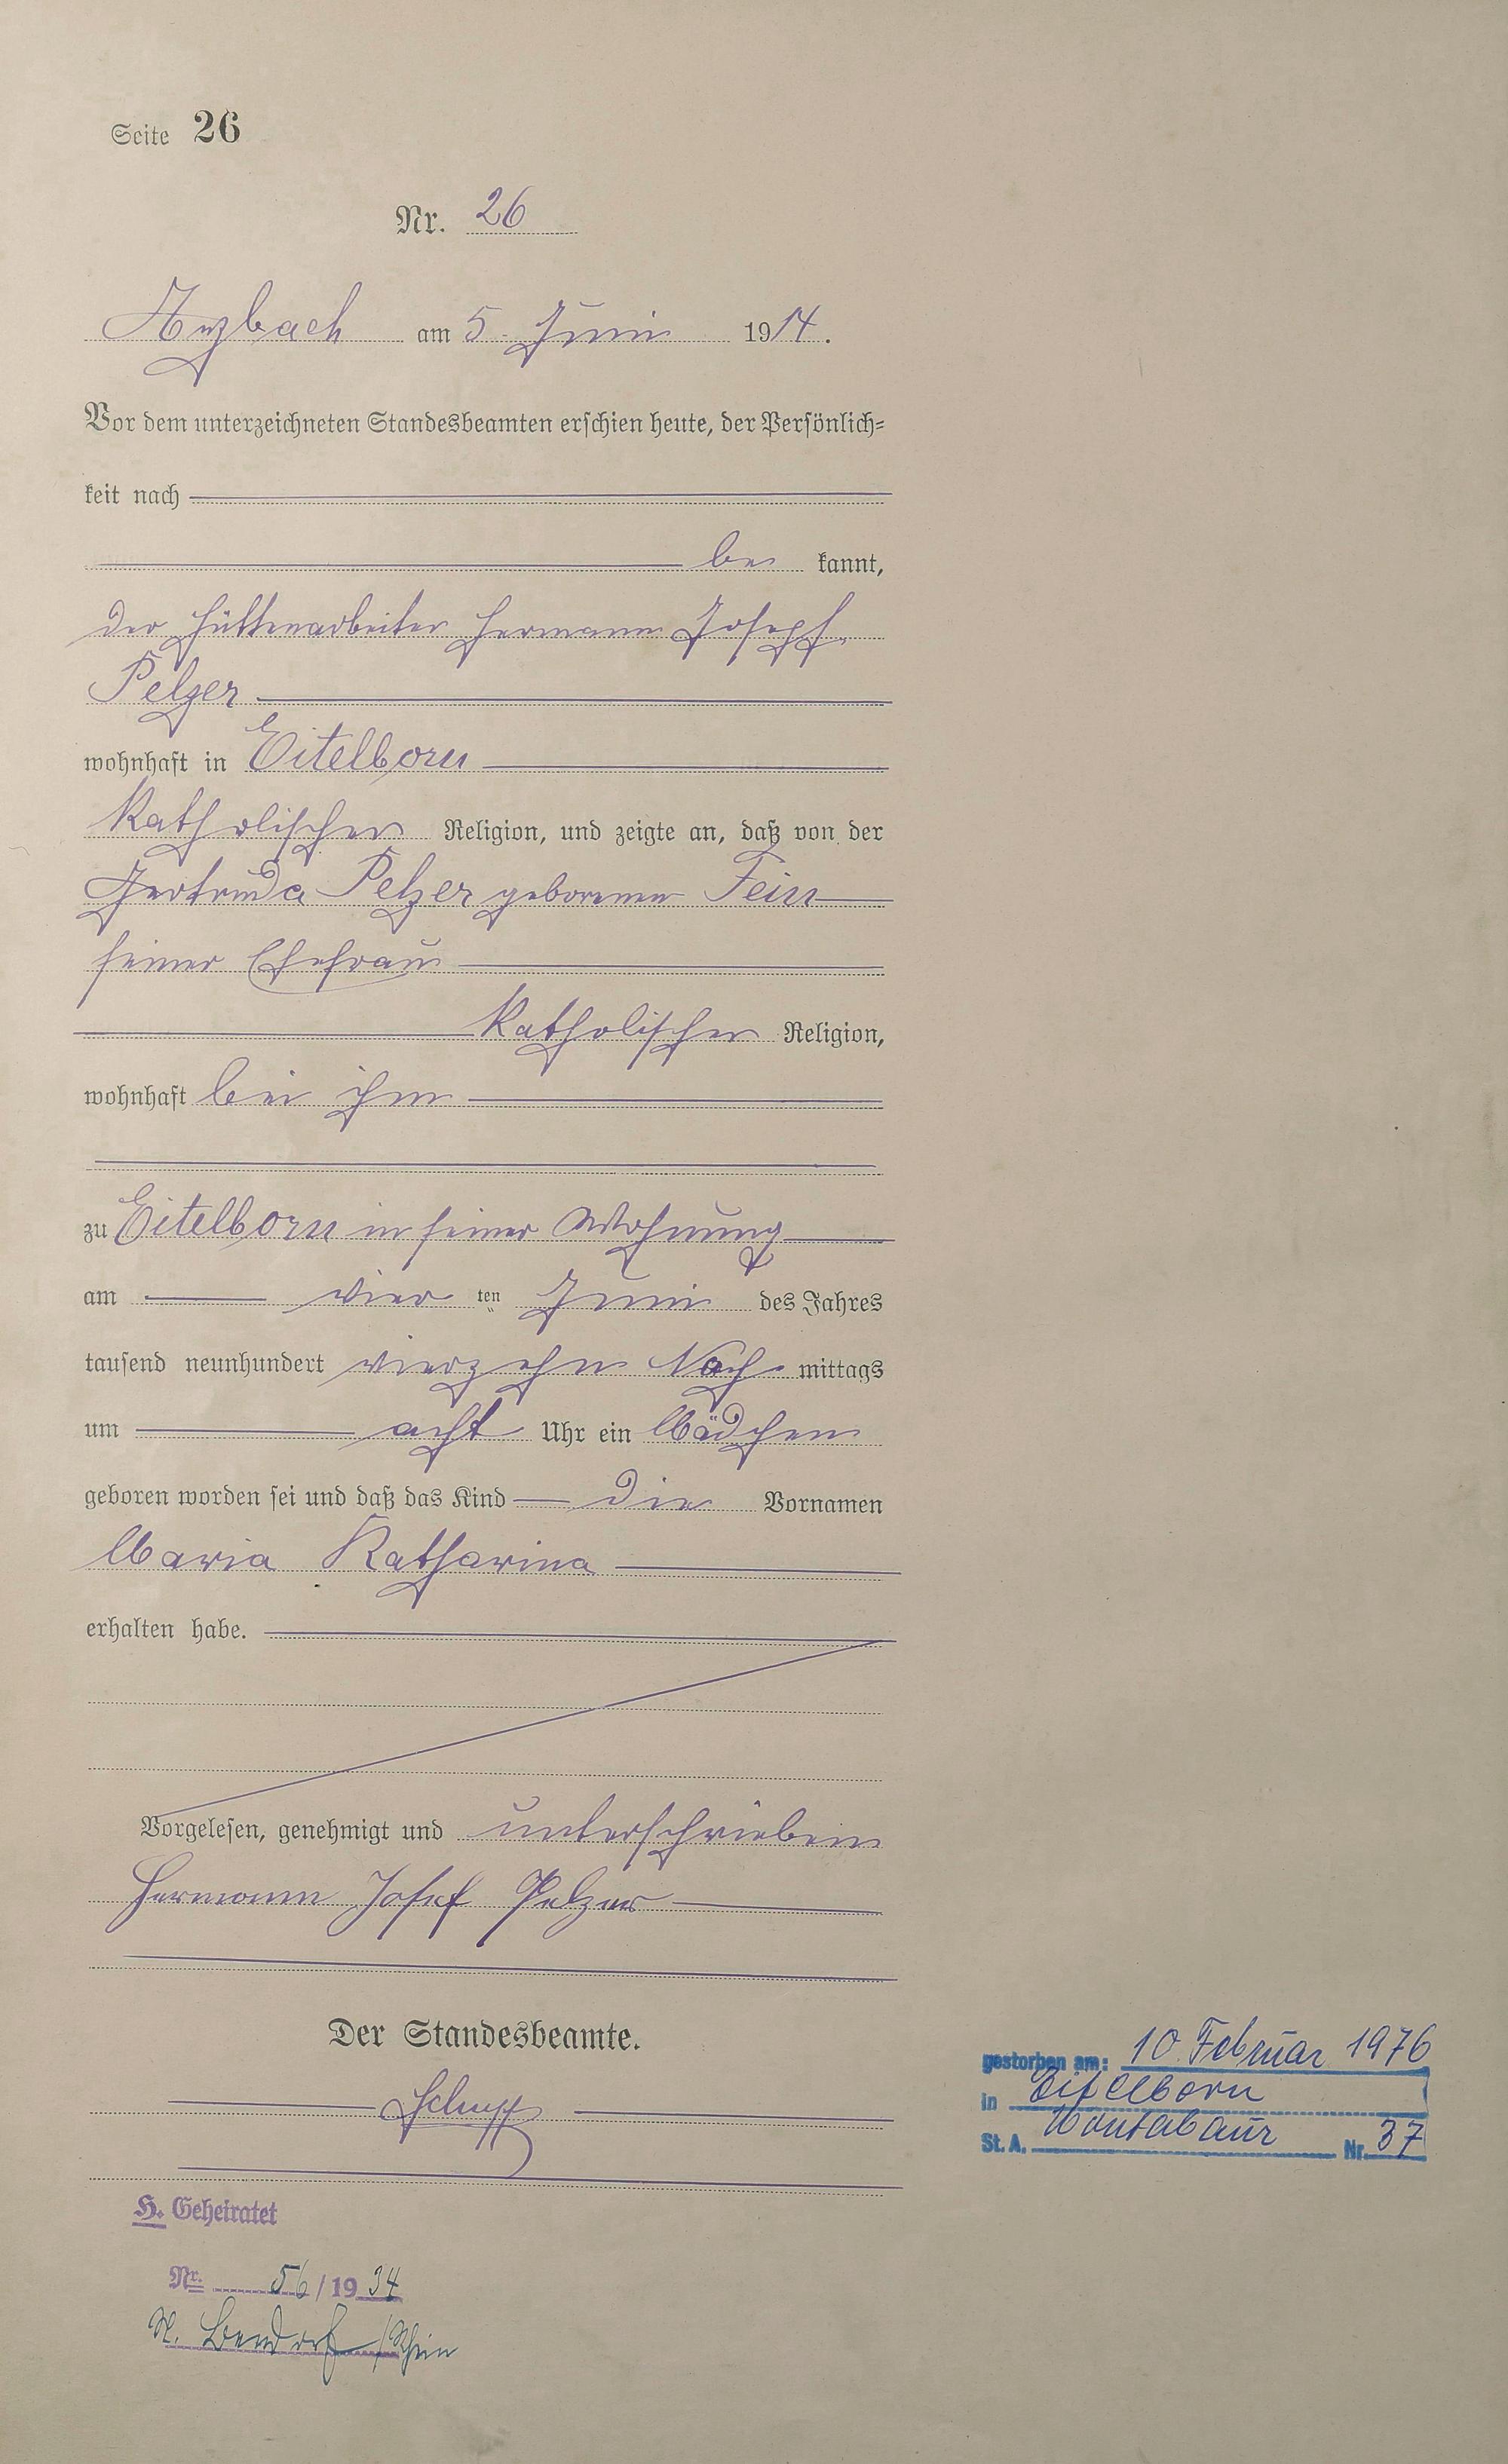 Seite 26
Nr. 26
Arzbach am 5. Juni 1914.
Vor dem unterzeichneten Standesbeamten erschien heute, der Persönlich=
keit nach
be kannt,
der Hüttenarbeiter Hermann Joseph
Pelzer
wohnhaft in Eitelborn
katholischer Religion, und zeigte an, daß von der
Gertruda Pelzer geborenen Fein
seiner Ehefrau
katholischer Religion,
wohnhaft bei ihm
zu Eitelborn in seiner Wohnung
am vier ten Juni des Jahres
tausend neunhundert vierzehn Nach mittags
um acht Uhr ein Mädchen
geboren worden sei und daß das Kind die Vornamen
Maria Katharina
erhalten habe.
Vorgelesen, genehmigt und unterschrieben
Hermann Josef Pelzer
Der Standesbeamte.
Schupp
H. Geheiratet
Nr. 56/1934
St. Bendorf/Rhein
gestorben am: 10. Februar 1976
in Eitelborn
St. A. Montabaur Nr. 37